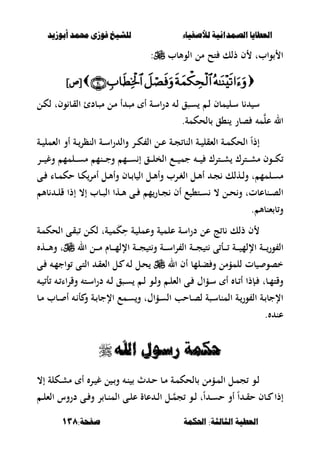 العطايا الصمدانية للأصفياء للشيخ فوزى محمد أبوزيد
الأبواب، لأن ذلك فتح من الوهاب ﷻ:
﴿ وَءَاتَيْنَـٰهُ ٱلْحِكْمَةَ وَفَصْلَ ٱلْخِطَابِ ۝٢٠ ﴾ [ص]
سيدنا سليمان لم يسبق له دراسة أى مبدأ من مبادئ القانون، لكن
الله علَّمه فصار ينطق بالحكمة.
إذاً الحكمة العقلية الناتجة عن الفكر والدراسة النظرية أو العملية
تكون مشترك يشترك فيه جميع الخلق إنسهم وجنهم مسلمهم وغير
مسلمهم، ولذلك نجد أهل الغرب وأهل اليابان وأهل أمريكا حكماء فى
الصناعات، ونحن لا نستطيع أن نجاريهم فى هذا الباب إلا إذا قلدناهم
وتابعناهم.
لأن ذلك ناتج عن دراسة علمية وعملية حِكَمية، لكن تبقى الحكمة
الفورية الإلهية تأتى نتيجة الفراسة ونتيجة الإلهام من الله ﷻ، وهذه
خصوصيات للمؤمن وفضلها أن الله ﷻ يحل له كل العقد التى تواجهه فى
وقتها، فإذا أتاه أى سؤال فى العلم ولو لم يسبق له دراسته وقراءته تأتيه
الإجابة الفورية المناسبة لصاحب السؤال، ويسمع الإجابة وكأنه أصاب ما
عنده.
حكمة رسول الله ﷺ
لو تجمل المؤمن بالحكمة ما حدث بينه وبين غيره أى مشكلة إلا
إذا كان حقداً أو حسداً، لو تجمَّل الدعاة على المنابر وفى دروس العلم
العطية الثالثة: الحكمة صفحة:١٣٨